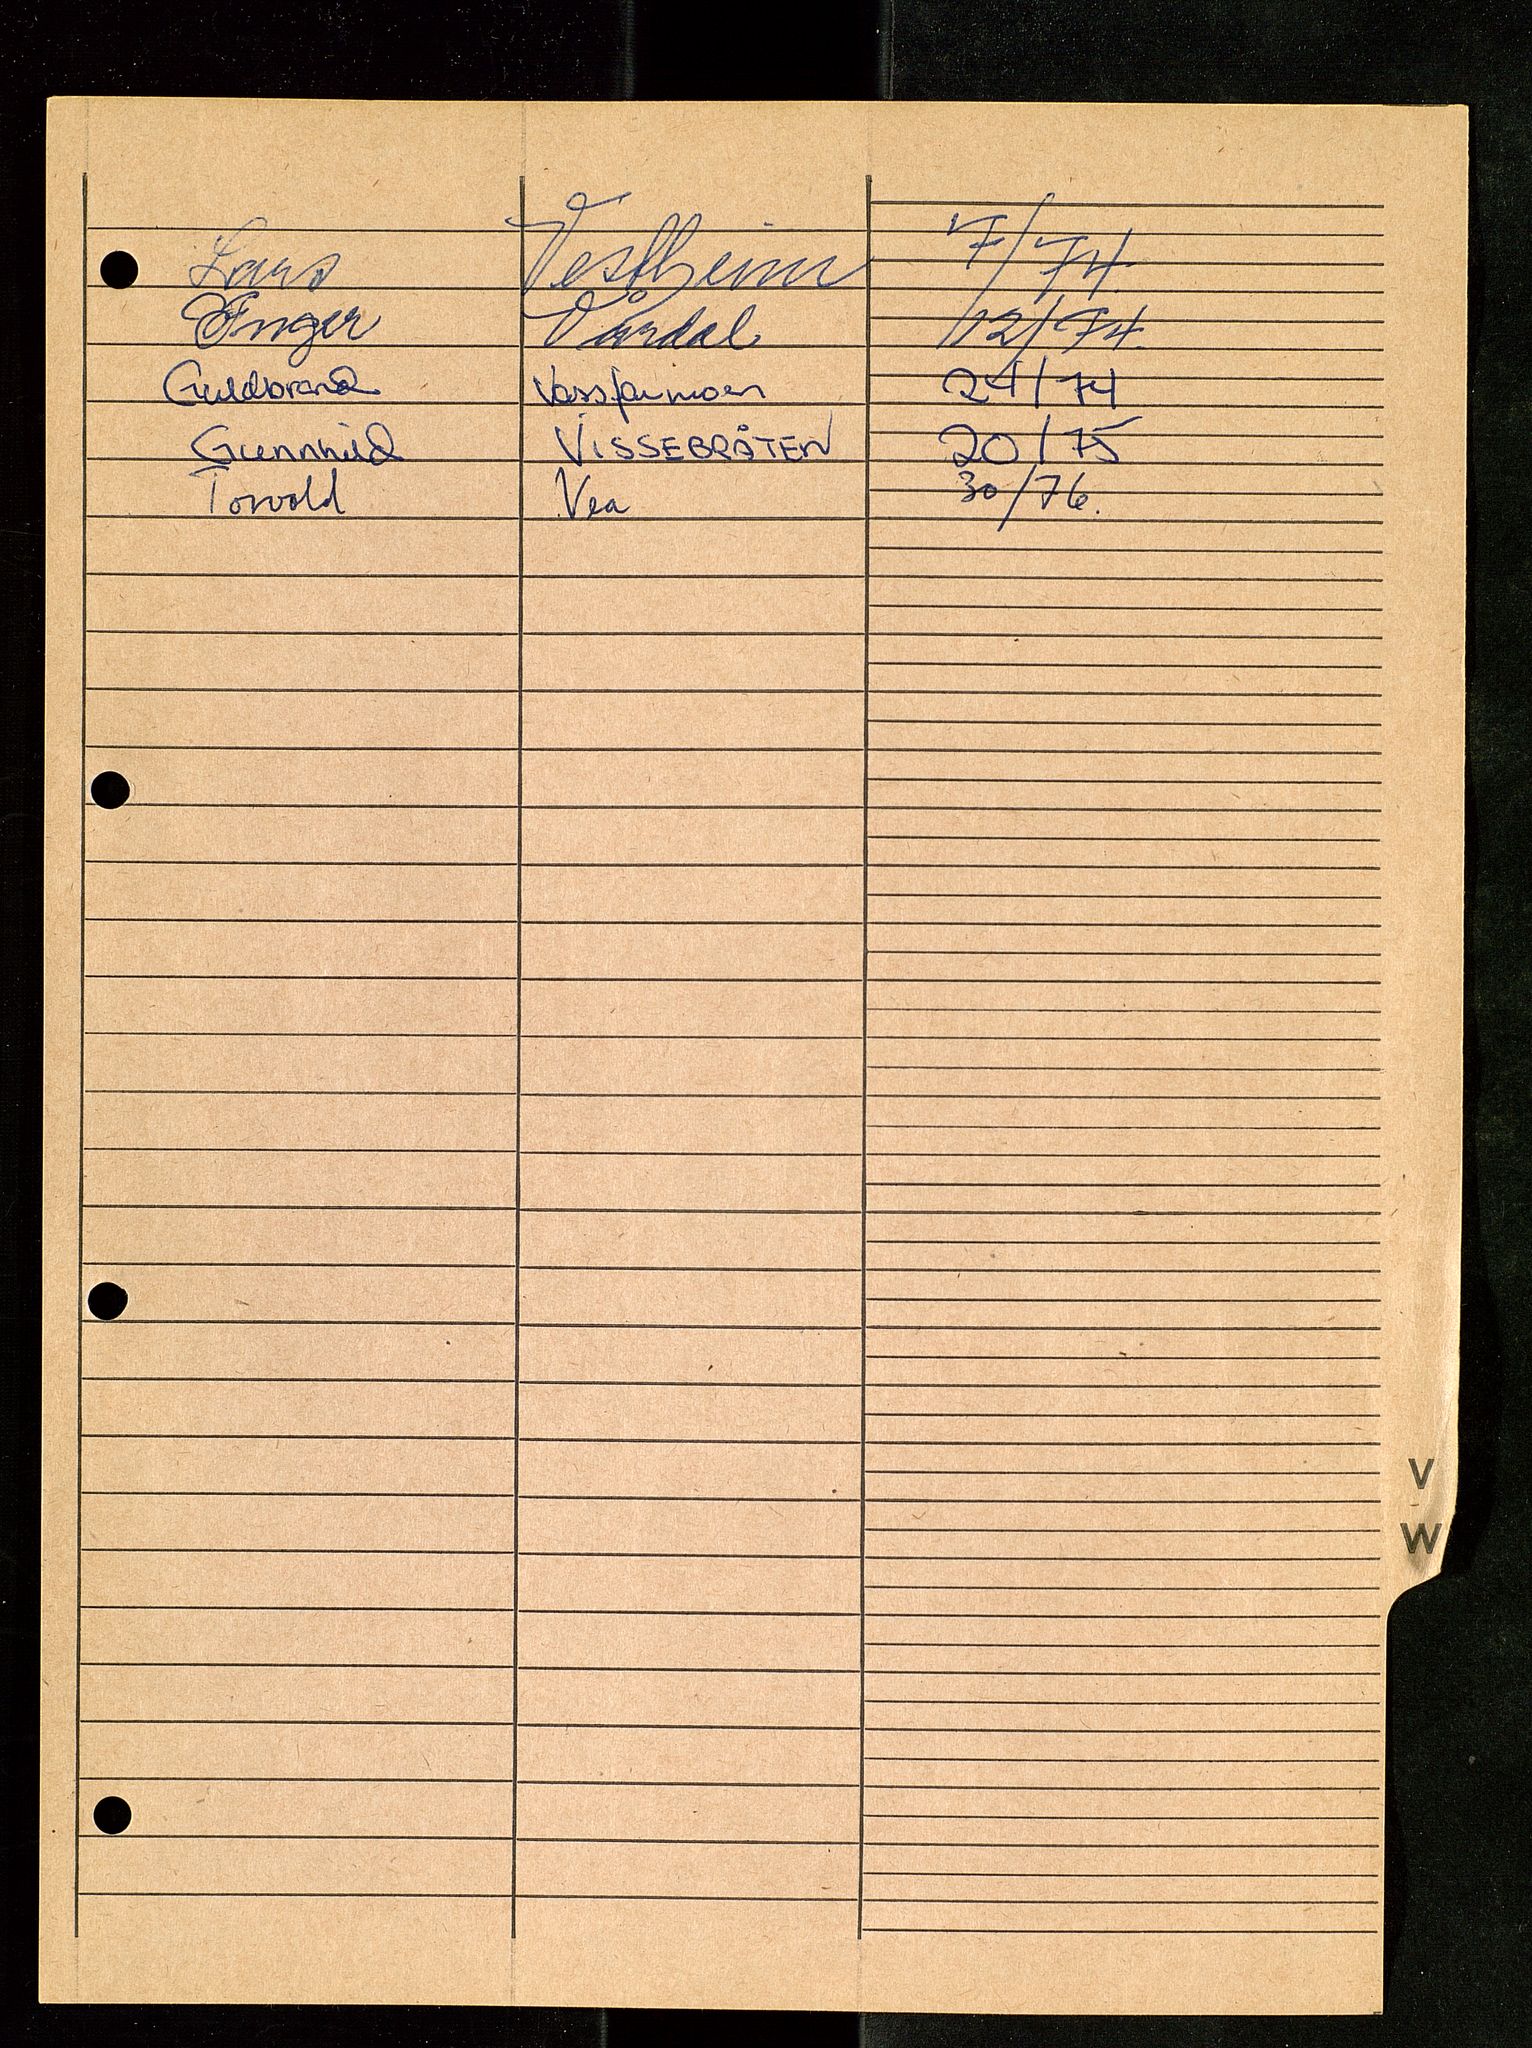 Lars Vestheim 7/74.
Inger Vårdal 12/74.
Guldbrand Vassfarmoen 24/74
Gunnhild VISSEBRÅTEN 20/75
Torvald Vea 30/76.
V
W